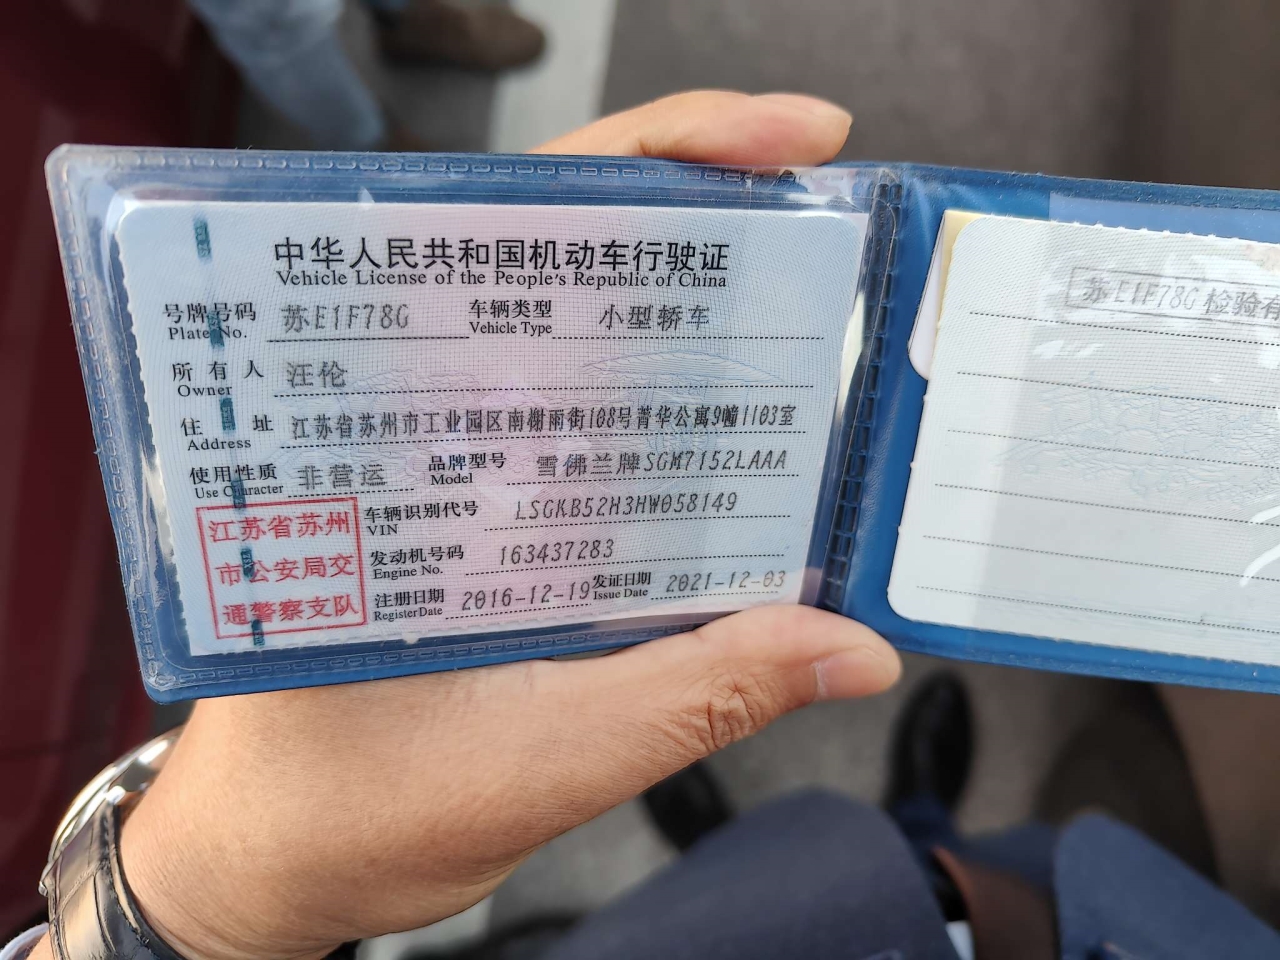 中华人民共和国机动车行驶证
Vehicle License of the People's Republic of China
号牌号码 苏E1F78G 车辆类型 小型轿车
Plate No. Vehicle Type
所有人 汪伦
Owner
住址 江苏省苏州市工业园区南榭雨街108号菁华公寓9幢1103室
Address
使用性质 非营运 品牌型号 雪佛兰牌SGM7152LAAA
Use Character Model
车辆识别代号 LSGKB52H3HW058149
VIN
发动机号码 163437283
Engine No.
注册日期 2016-12-19 发证日期 2021-12-03
Register Date Issue Date
江苏省苏州
市公安局交
通警察支队
苏E1F78G 检验有